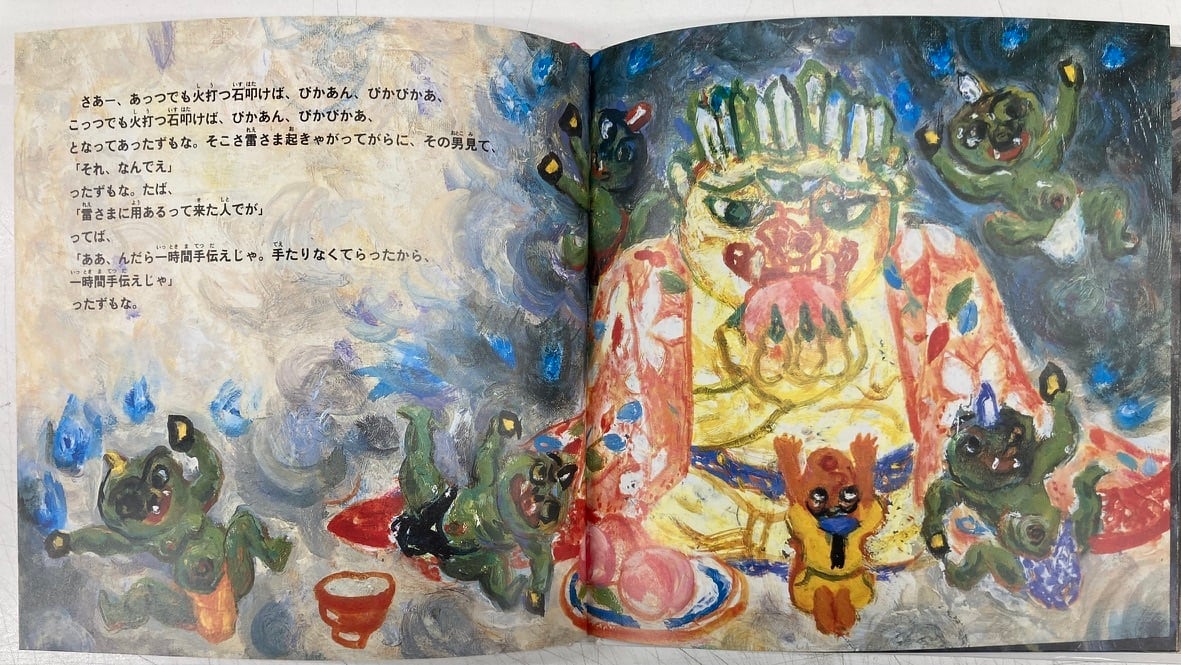 さあー、あっつでも火打つ石叩けば、ぴかあん、ぴかぴかあ、
こっつでも火打つ石叩けば、ぴかあん、ぴかぴかあ、
となってあったずもな。そこさ雷さま起きゃがってがらに、その男見て、
「それ、なんでえ」
ったずもな。たば、
「雷さまに用あるって来た人でが」
ってば、
「ああ、んだら一時間手伝えじゃ。手たりなくてらったから、
一時間手伝えじゃ」
ったずもな。